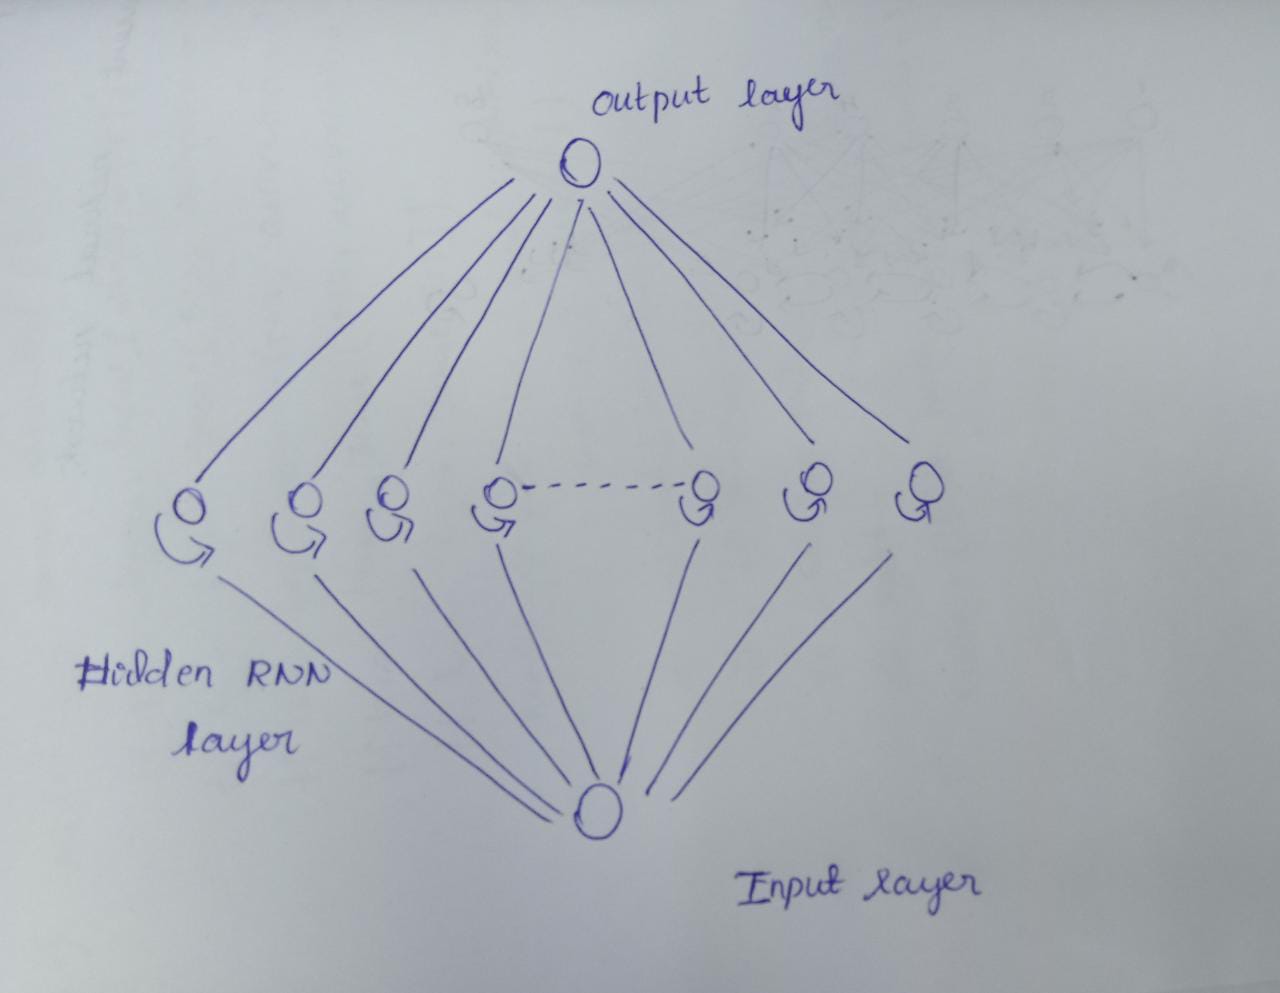 output layer
Hidden RNN
layer
Input layer